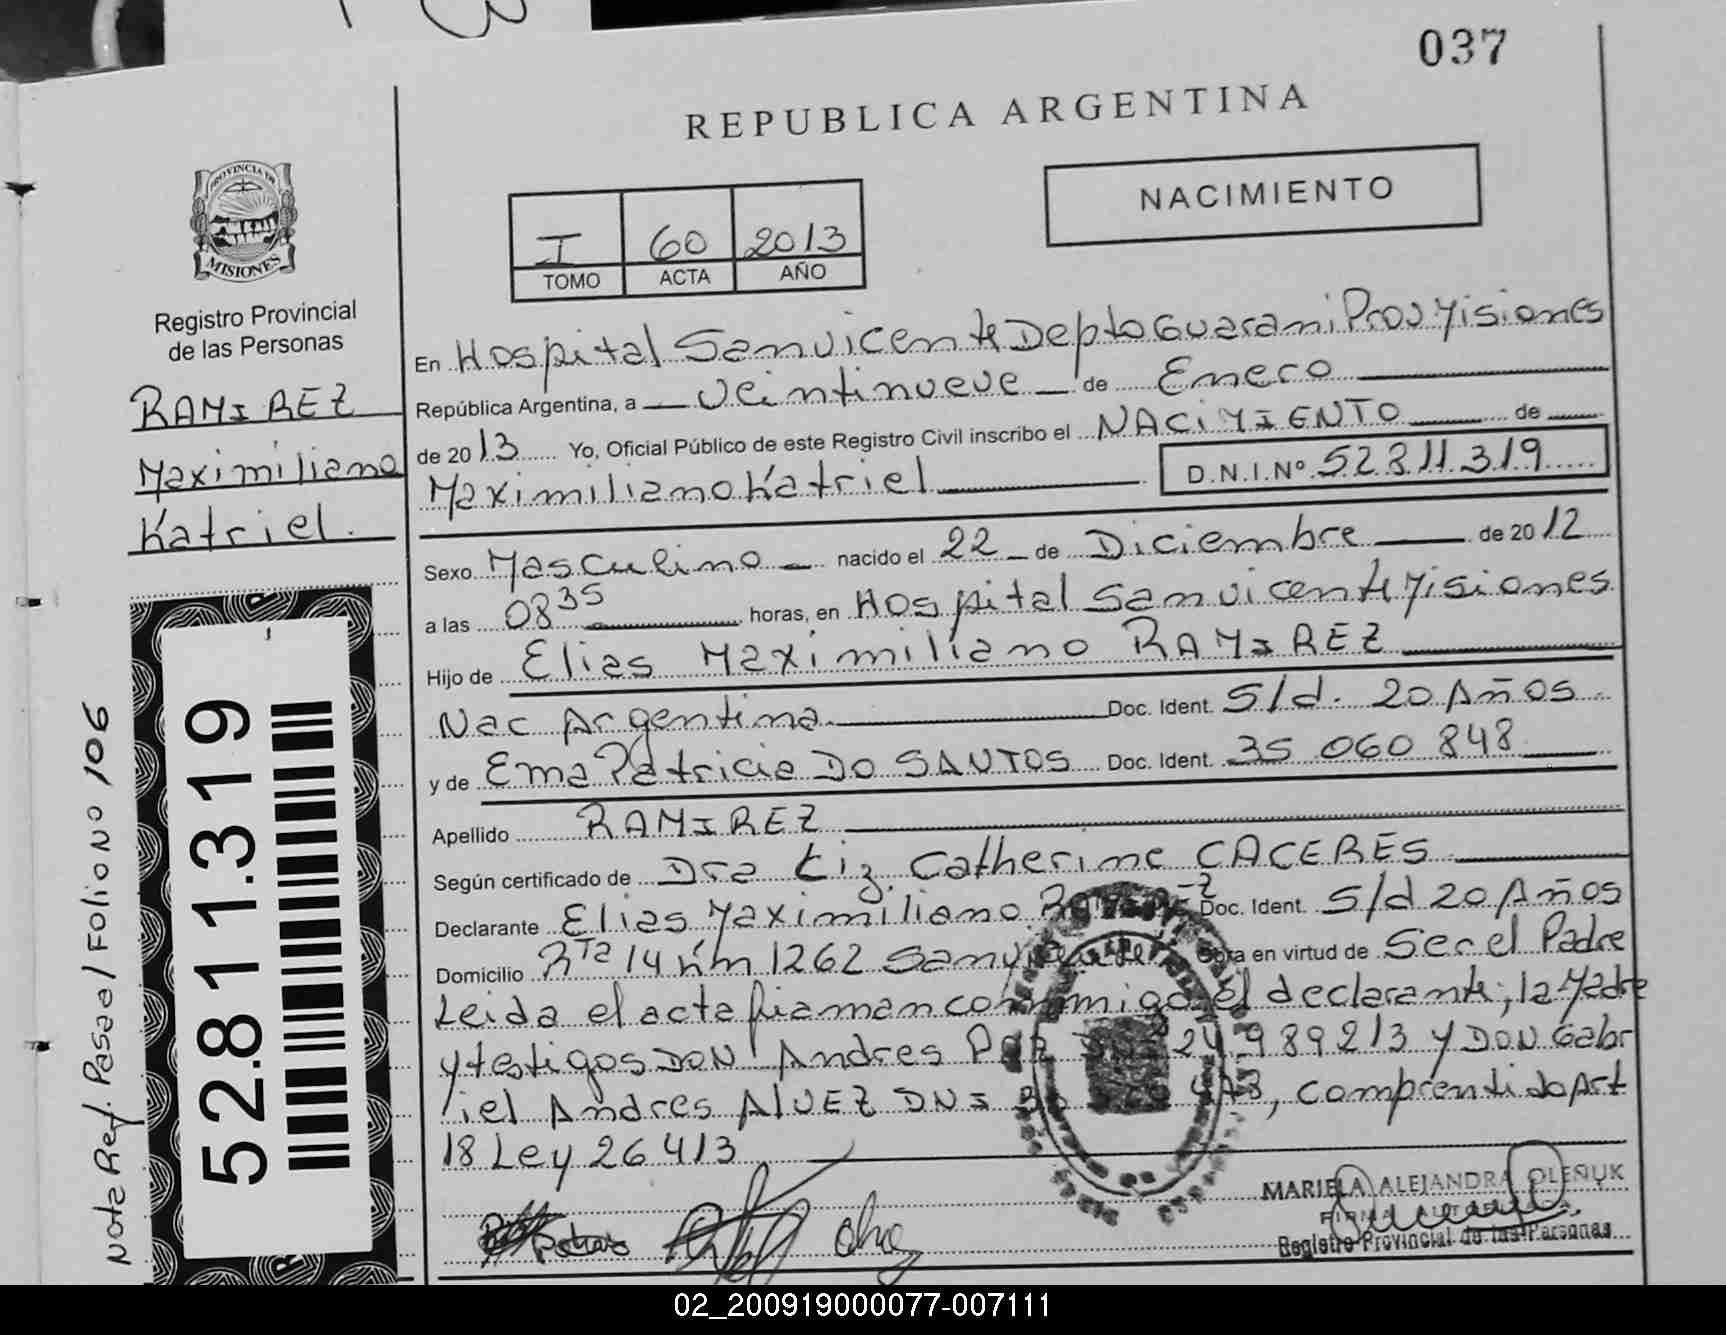 037
REPUBLICA ARGENTINA
NACIMIENTO
I 60 2013
TOMO ACTA AÑO
PROVINCIA DE
MISIONES
Registro Provincial
de las Personas
RAMIREZ
Maximiliano
Katriel.
52.811.319
Nota Ref. Pasa al Folio Nº 106
En Hospital San vicente Depto Guarani Prov Misiones
República Argentina, a veintinueve de Enero
de 2013 Yo, Oficial Público de este Registro Civil inscribo el NACIMIENTO de
Maximiliano Katriel D.N.I.Nº 52 811 319
Sexo Masculino nacido el 22 de Diciembre de 2012
a las 08 35 horas, en Hospital San vicente Misiones
Hijo de Elias Maximiliano RAMIREZ
Nac Argentina Doc. Ident. S/d. 20 Años
y de Ema Patricia DO SANTOS Doc. Ident. 35 060 848
Apellido RAMIREZ
Según certificado de Dra Liz Catherine CACERES
Declarante Elias Maximiliano Doc. Ident. S/d 20 Años
Domicilio Rta 14 km 1262 San Obra en virtud de Ser el Padre
Leida el acta firman conmigo el declarante, la Madre
y testigos DON Andres 24 989 213 y DON Gabr
iel Andres AlVEZ DNI comprentido Art
18 Ley 26 413
MARIELA ALEJANDRA OLEÑUK
Registro Provincial de las Personas
02_200919000077-007111